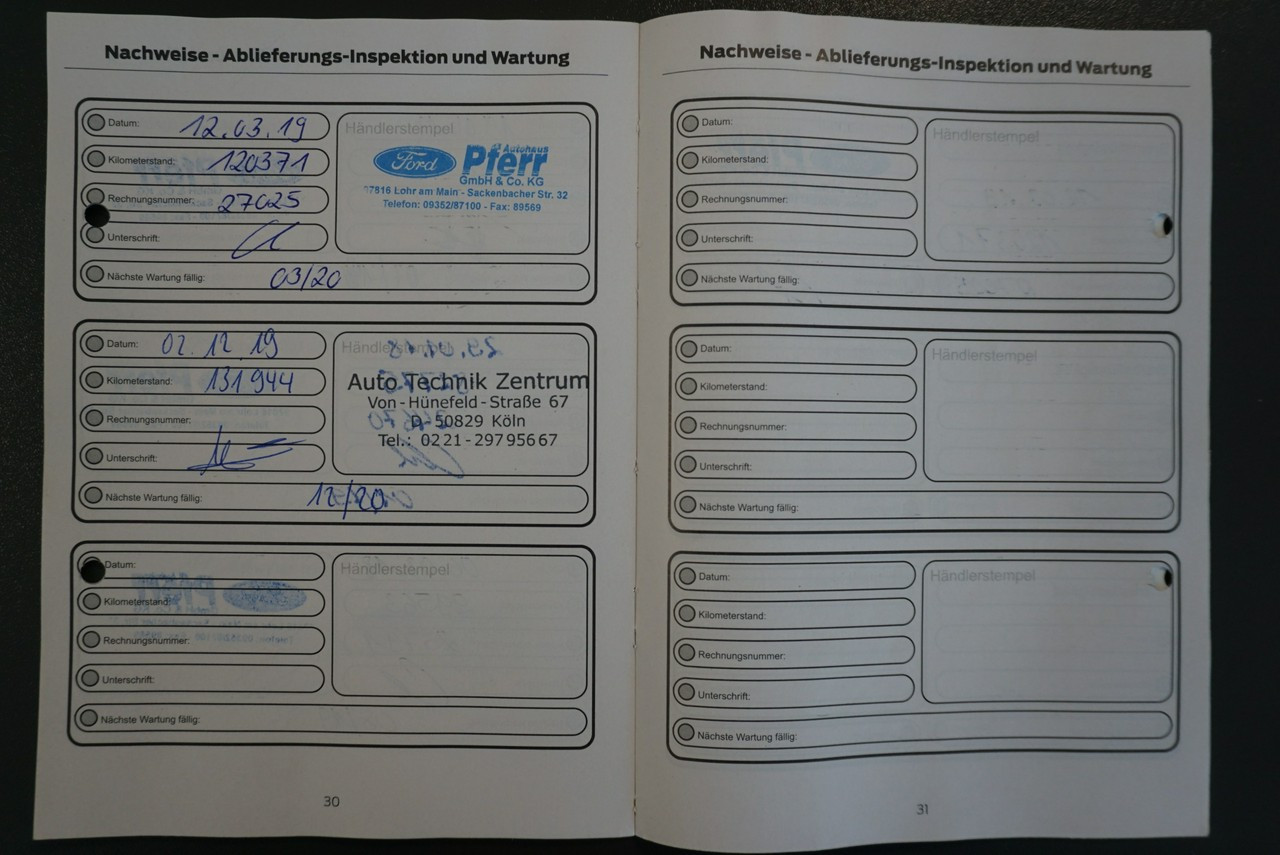 Nachweise - Ablieferungs-Inspektion und Wartung
Datum: 12.03.19
Kilometerstand: 120371
Rechnungsnummer: 27025
Unterschrift:
Nächste Wartung fällig: 03/20
Händlerstempel
Ford Autohaus Pferr
GmbH & Co. KG
97816 Lohr am Main - Sackenbacher Str. 32
Telefon: 09352/87100 - Fax: 89569
Datum: 02.12.19
Kilometerstand: 131944
Rechnungsnummer:
Unterschrift:
Nächste Wartung fällig: 12/20
Händlerstempel
Auto Technik Zentrum
Von-Hünefeld-Straße 67
D-50829 Köln
Tel.: 0221-29795667
Datum:
Kilometerstand:
Rechnungsnummer:
Unterschrift:
Nächste Wartung fällig:
Händlerstempel
30
Nachweise - Ablieferungs-Inspektion und Wartung
Datum:
Kilometerstand:
Rechnungsnummer:
Unterschrift:
Nächste Wartung fällig:
Händlerstempel
Datum:
Kilometerstand:
Rechnungsnummer:
Unterschrift:
Nächste Wartung fällig:
Händlerstempel
Datum:
Kilometerstand:
Rechnungsnummer:
Unterschrift:
Nächste Wartung fällig:
Händlerstempel
31